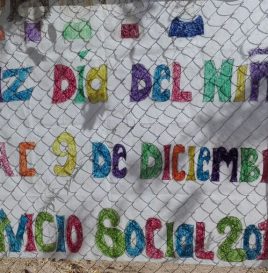 IZ DÍA DEL NIÑ
A.C 9 DE DICIEMB
VICIO SOCIAL 201